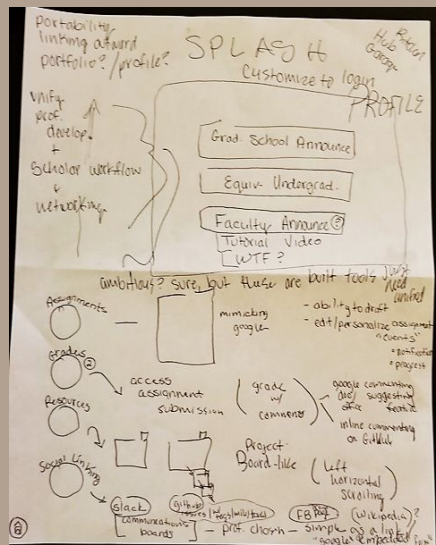 Portability,
linking award
portfolio?/profile?
SPLASH
Hub
Customize to login
PROFILE
unify
prof.
develop.
+
Scholar workflow
+
networking
Grad. School Announce
Equiv. Undergrad.
Faculty Announce
Tutorial Video
WTF?
ambitious? sure, but these are built tools just
need
unified
Assignments
mimicking
google
- ability to draft
- edit/personalize assignment
"events"
• notification
• progress
Grades
2
access
assignment
submission
(grade
w/
comments)
google commenting
and/
suggesting
feature
inline commenting
on GitHub
Resources
Project
Board-like
(left
horizontal
scrolling)
Social Linking
Slack
github
FB
(Wikipedia)?
communications
boards
- prof. chosen - simple as a link/
"google"